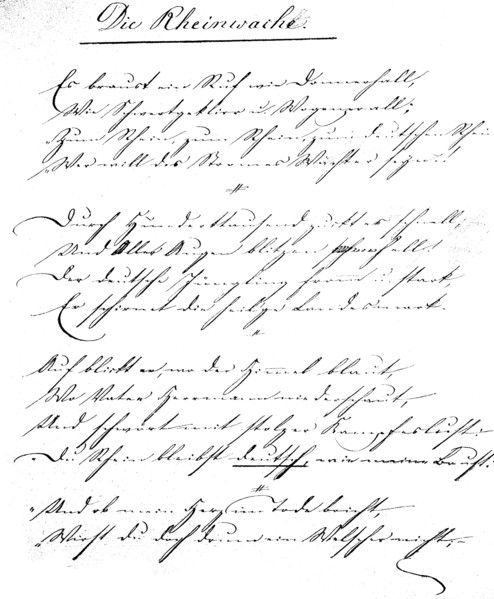 Die Rheinwacht.
Es braust ein Ruf wie Donnerhall,
Wie Schwertgeklirr u. Wogenprall:
„Zum Rhein, zum Rhein, zum deutschen Rhein
„Wer will des Stromes Wächter seyn!
Durch Hunderttausend zuckt es schnell,
Und Aller Augen blitzen hell:
Der deutsche Jüngling fromm u. stark,
Er schirmet die heilge Landesmark.
Auf blickt er, wo der Himmel blaut,
Wo Vater Herrmann niederschaut,
Und schwört mit stolzer Kampfeslust:
„Du Rhein bleibst deutsch, wie meine Brust.
„Und ob mein Herz im Tode bricht,
„Wirst du doch drum ein Welscher nicht,–